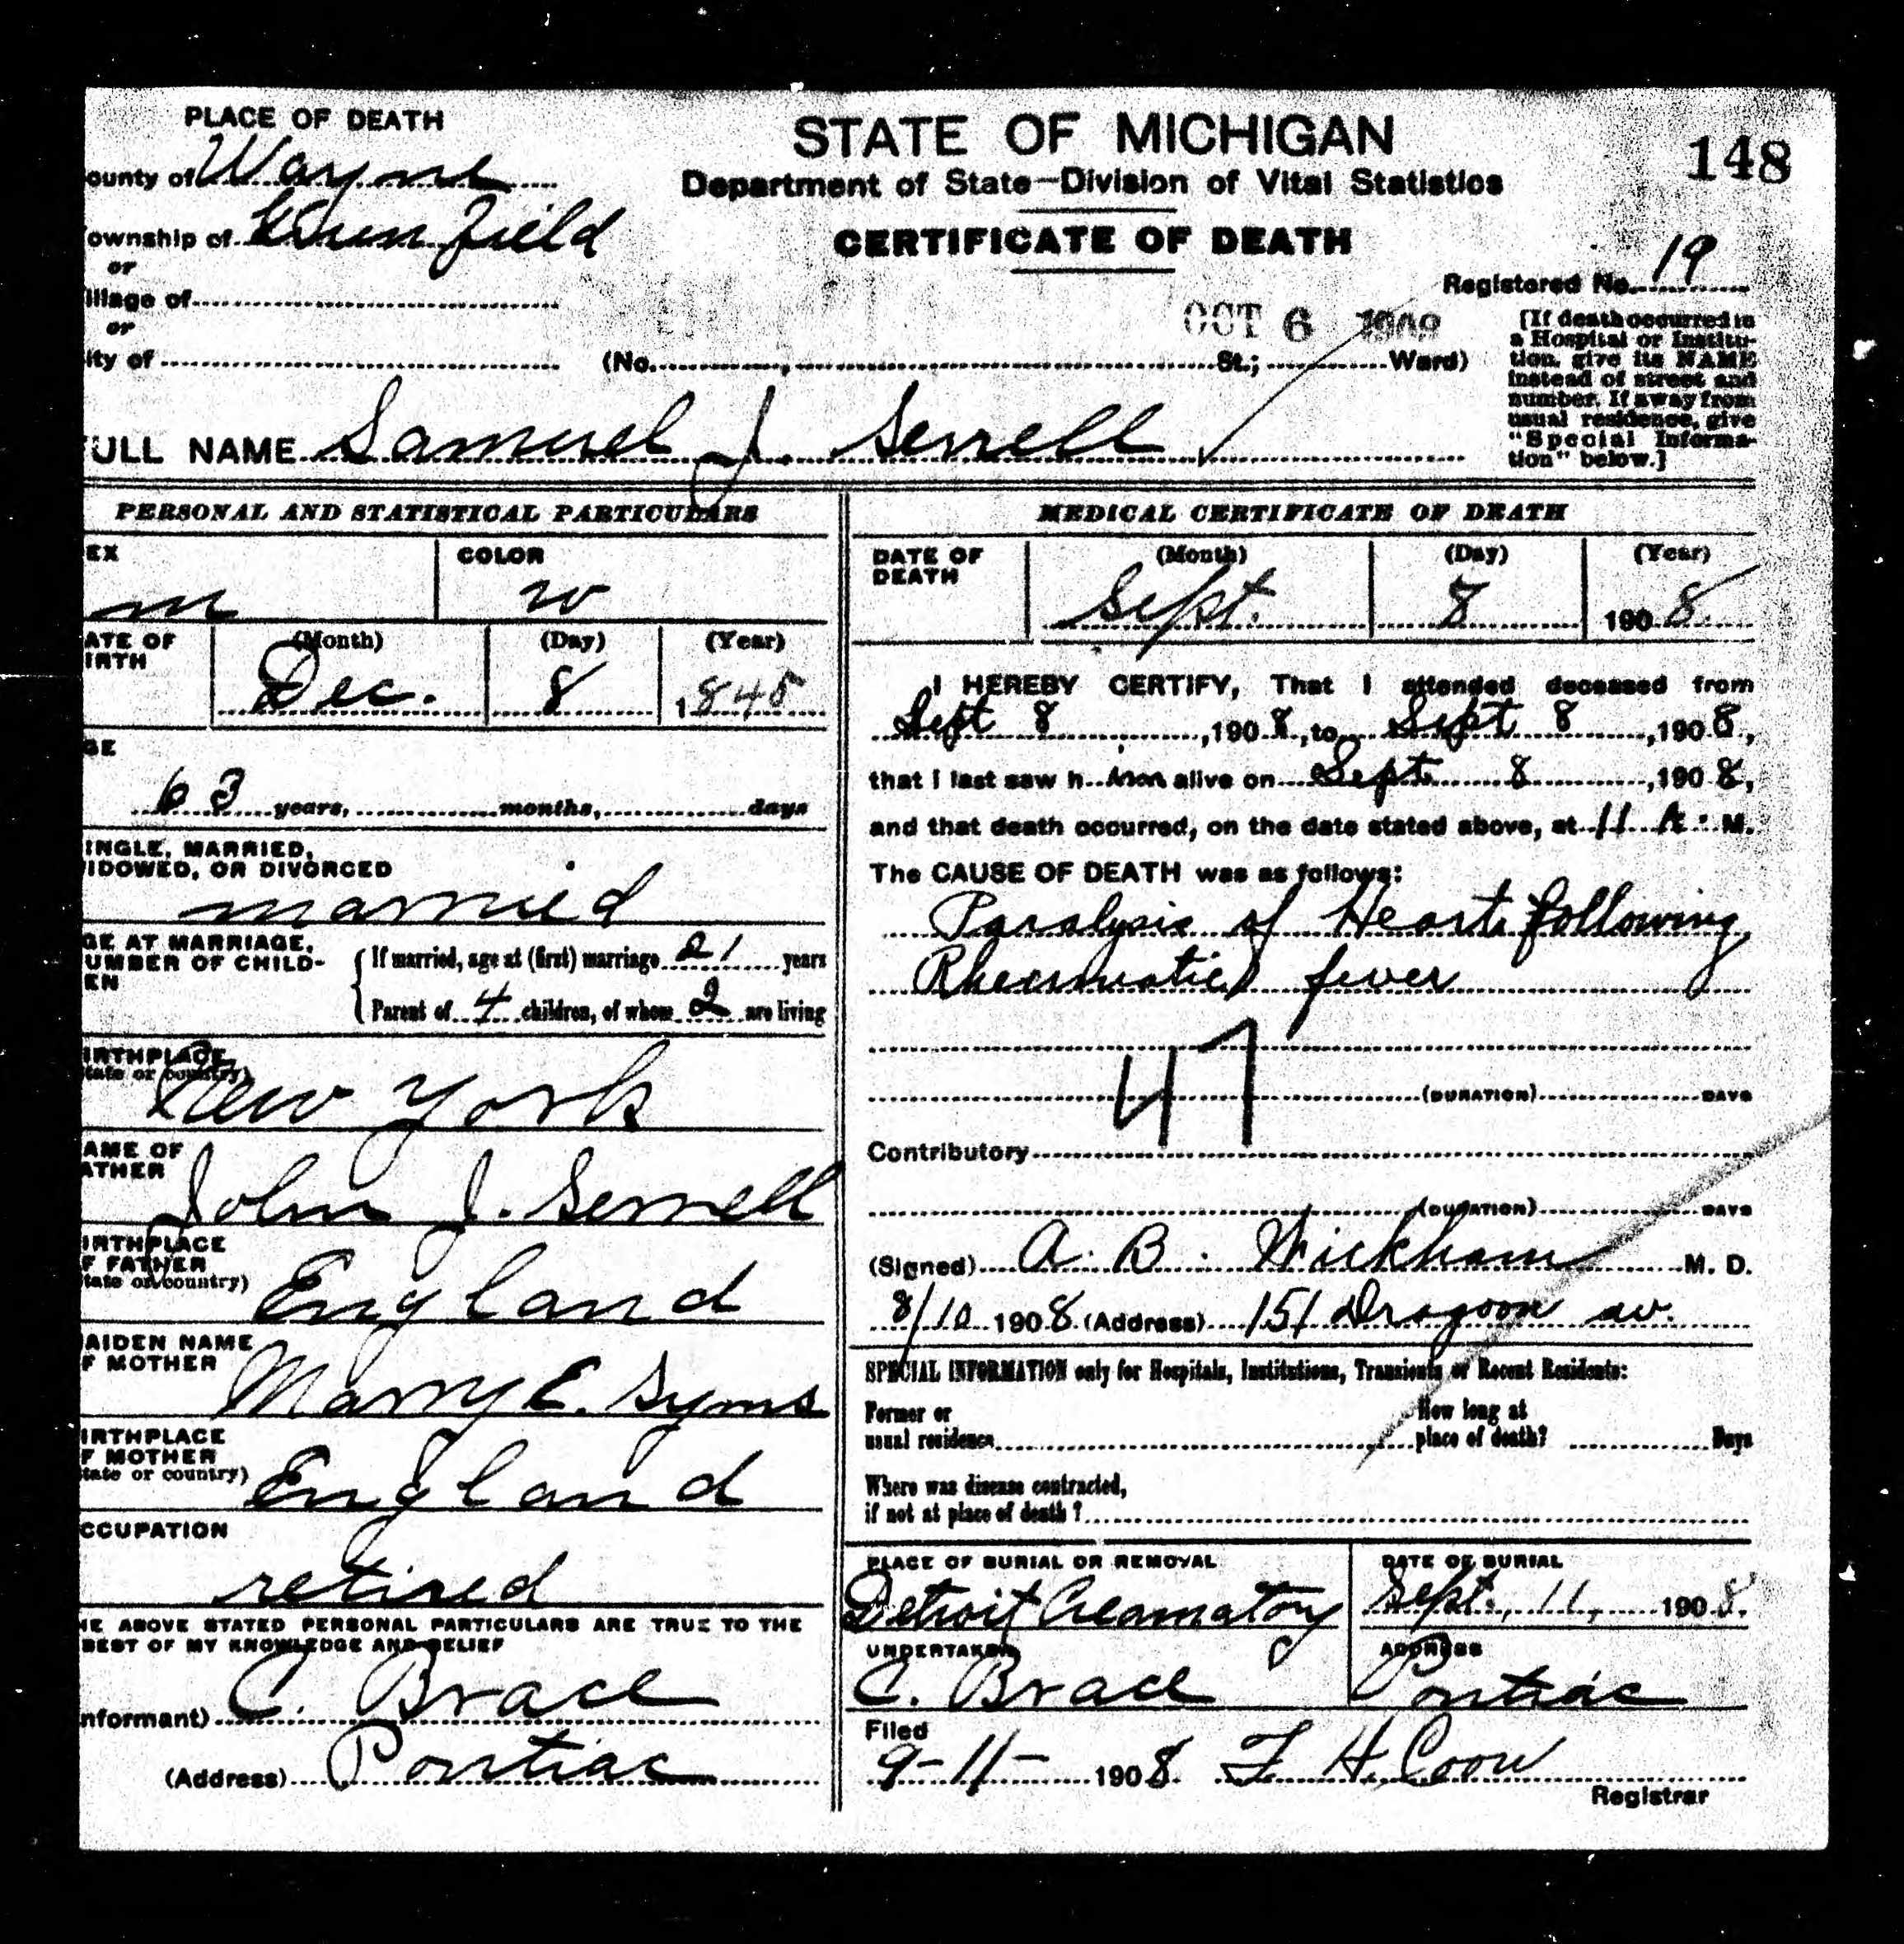 PLACE OF DEATH
ounty of Wayne
ownship of Greenfield
or
illage of
or
ity of
STATE OF MICHIGAN
Department of State—Division of Vital Statistics
CERTIFICATE OF DEATH
148
Registered No. 19
OCT 6 1908
(No. , St.; Ward)
[If death occurred in
a Hospital or Institu-
tion, give its NAME
instead of street and
number. If away from
usual residence, give
"Special Informa-
tion" below.]
ULL NAME Samuel J. Serrell
PERSONAL AND STATISTICAL PARTICULARS
EX
m
COLOR
w
ATE OF
IRTH
(Month) (Day) (Year)
Dec. 8 1845
GE
63 years, months, days
INGLE, MARRIED,
IDOWED, OR DIVORCED
married
GE AT MARRIAGE,
UMBER OF CHILD-
EN
If married, age at (first) marriage 21 years
Parent of 4 children, of whom 2 are living
IRTHPLACE
tate or country)
New York
AME OF
ATHER
John J. Serrell
IRTHPLACE
F FATHER
tate or country)
England
AIDEN NAME
F MOTHER
Marry E. Syms
IRTHPLACE
F MOTHER
tate or country)
England
CCUPATION
retired
HE ABOVE STATED PERSONAL PARTICULARS ARE TRUE TO THE
BEST OF MY KNOWLEDGE AND BELIEF
nformant) C. Brace
(Address) Pontiac
MEDICAL CERTIFICATE OF DEATH
DATE OF
DEATH
(Month) (Day) (Year)
Sept. 8 1908
I HEREBY CERTIFY, That I attended deceased from
Sept 8 ,1908, to Sept 8 ,1908,
that I last saw him alive on Sept. 8 ,1908,
and that death occurred, on the date stated above, at 11 A. M.
The CAUSE OF DEATH was as follows:
Paralysis of Heart following
Rheumatic fever
47
(DURATION) DAYS
Contributory
(DURATION) DAYS
(Signed) A. B. Wickham M. D.
8/10 1908 (Address) 151 Dragoon av.
SPECIAL INFORMATION only for Hospitals, Institutions, Transients or Recent Residents:
Former or
usual residence
How long at
place of death? Days
Where was disease contracted,
if not at place of death?
PLACE OF BURIAL OR REMOVAL
Detroit Creamatory
DATE OF BURIAL
Sept. 11, 1908.
UNDERTAKER
C. Brace
ADDRESS
Pontiac
Filed
9-11- 1908 F. H. Coon
Registrar